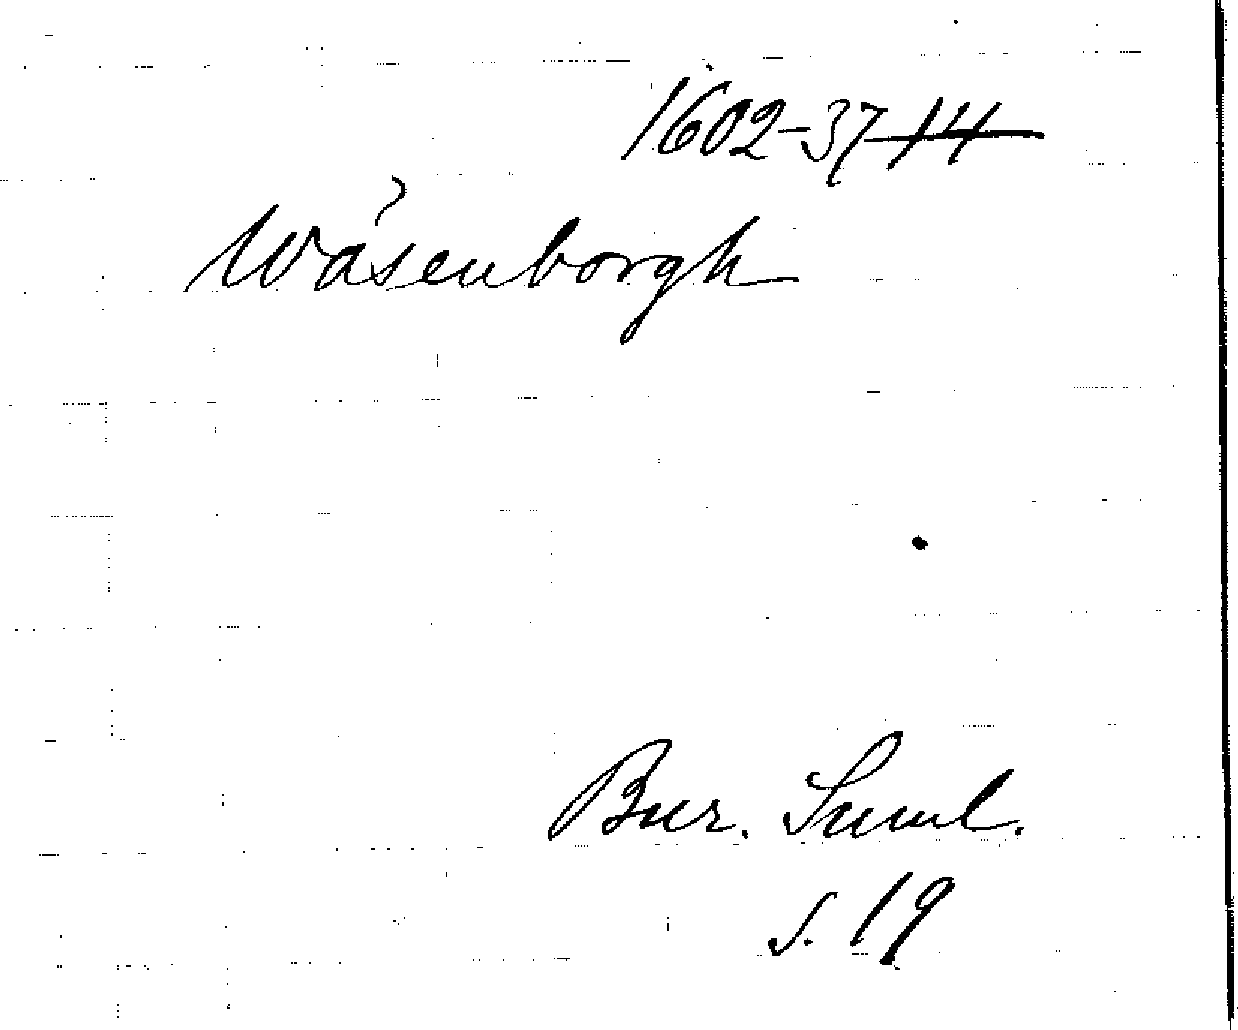 1602-37-14
Wåsenborgh
Bur. Saml.
s. 19